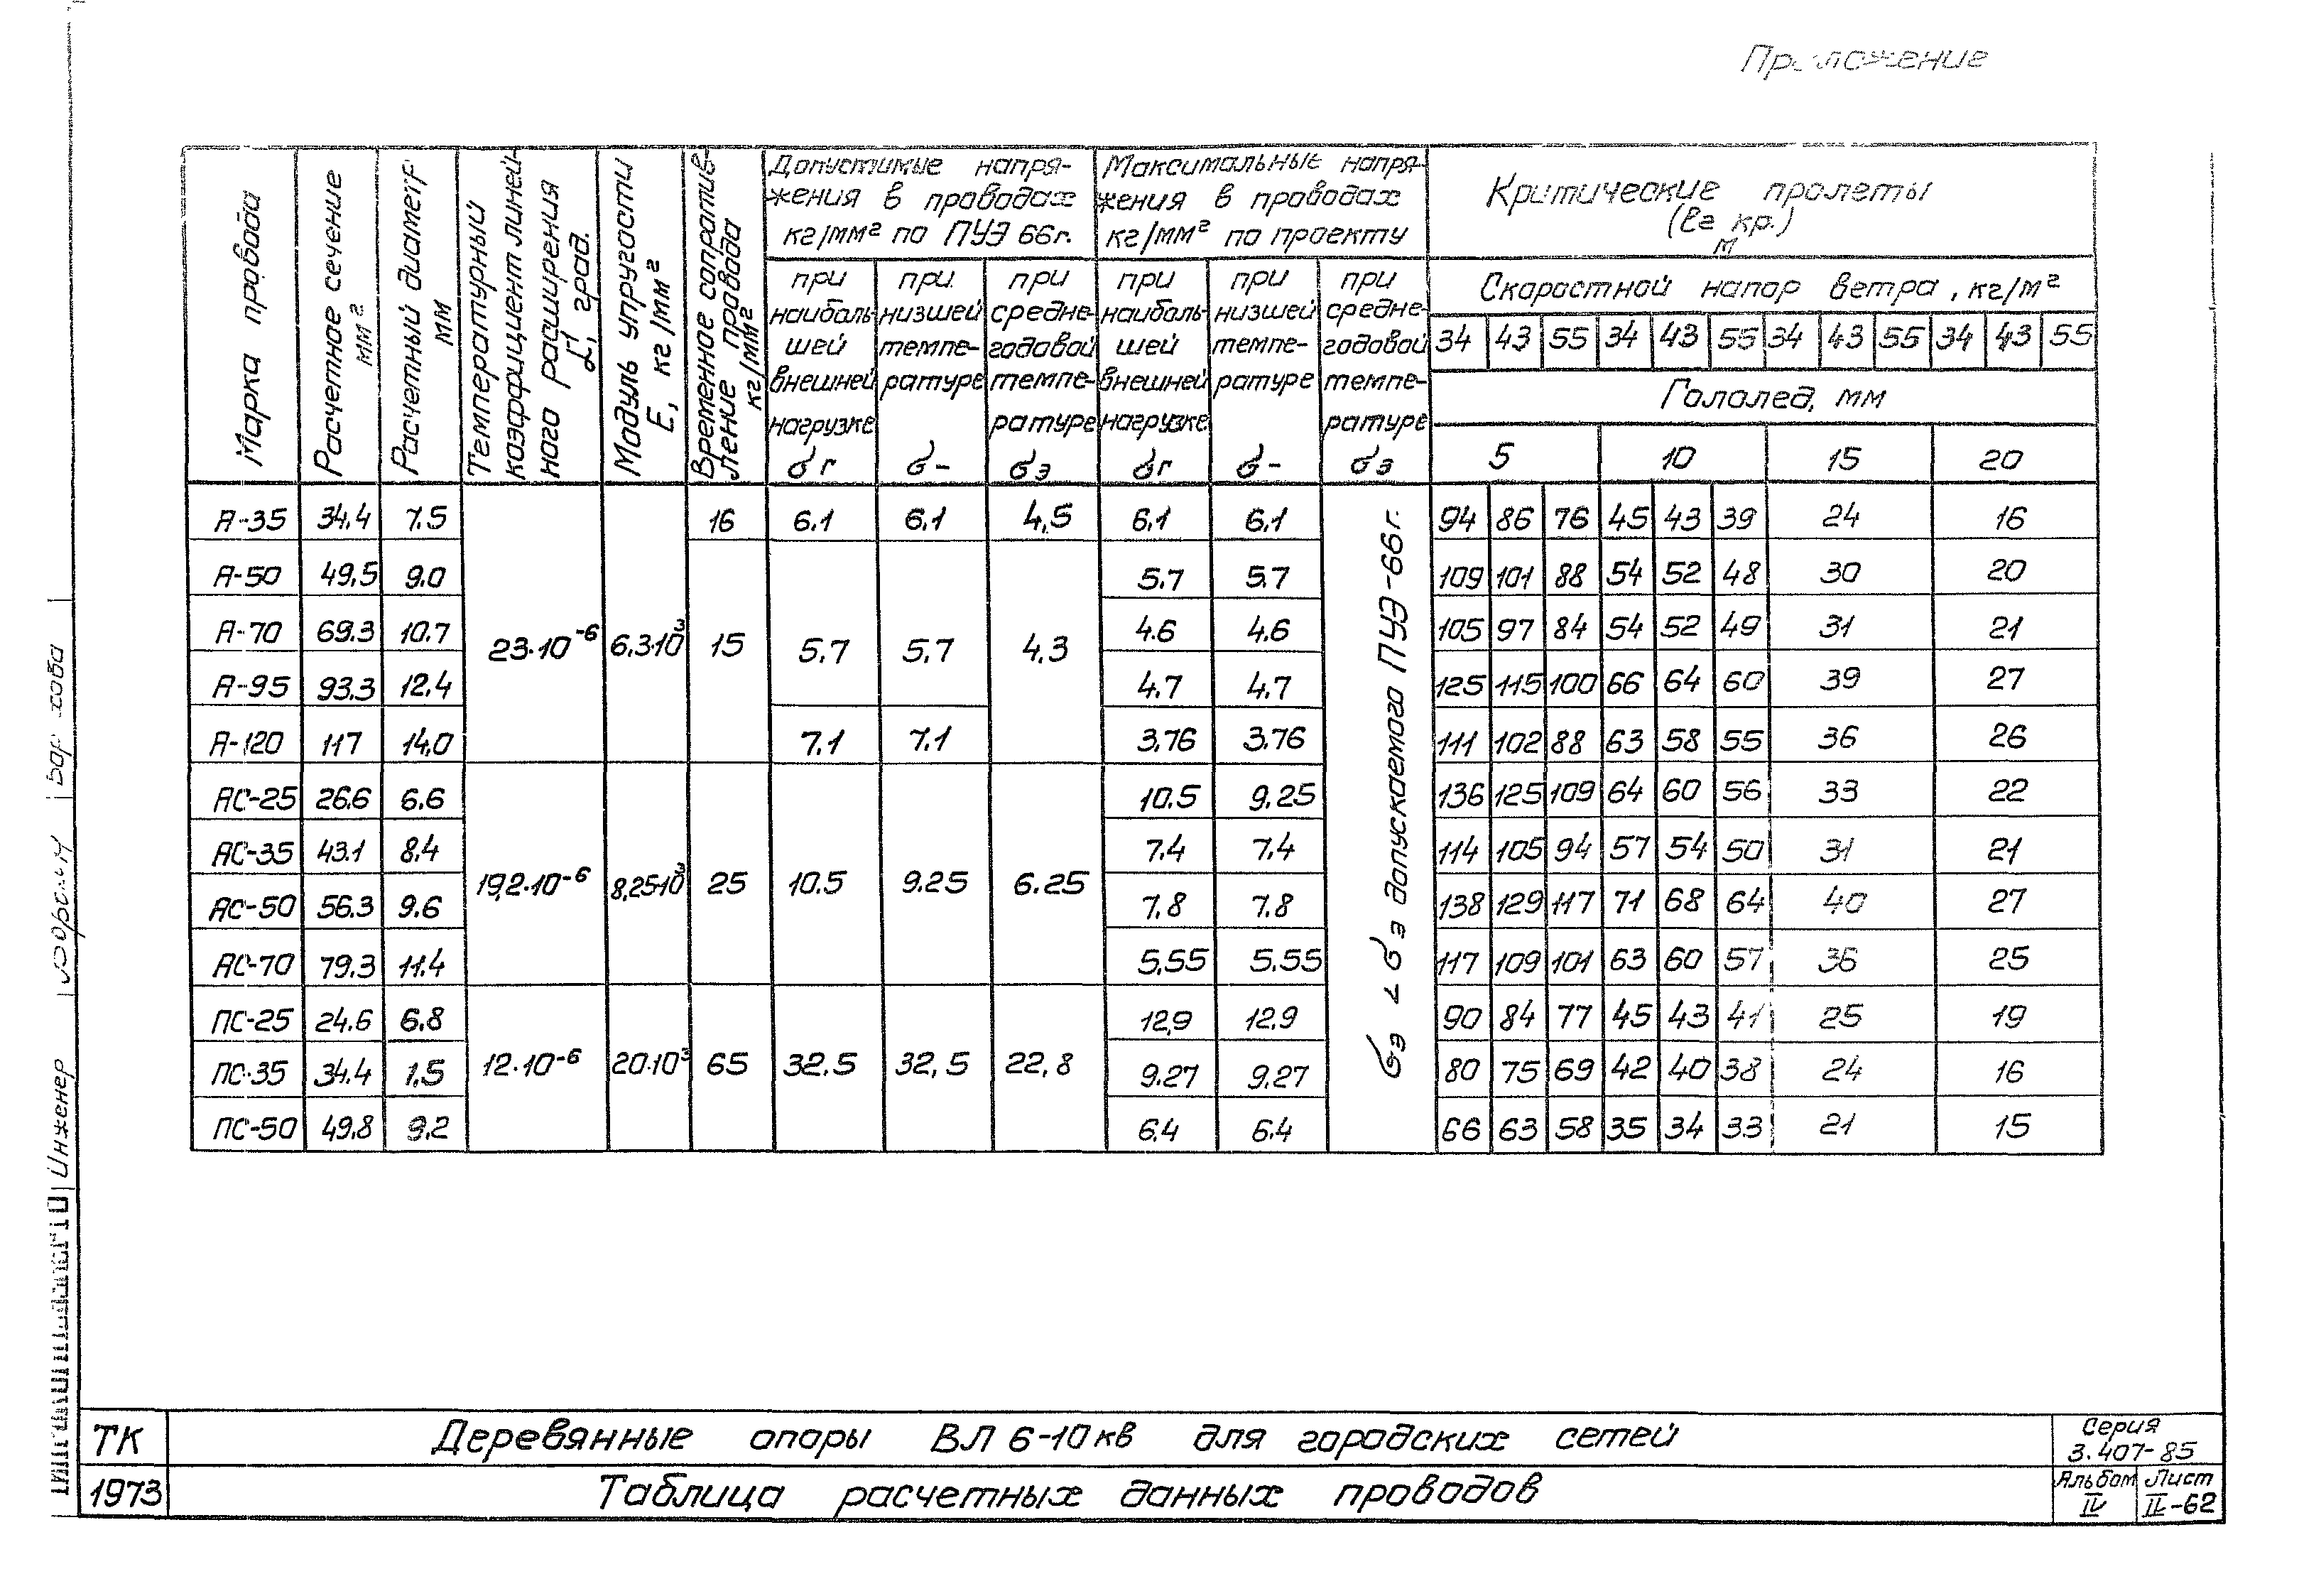 Приложение
Марка провода
Расчетное сечение мм²
Расчетный диаметр мм
Температурный коэффициент линей-
ного расширения
град.
Модуль упругости
E, кг/мм²
Временное сопротив-
ление провода
кг/мм²
Допустимые напря-
жения в проводах
кг/мм² по ПУЭ 66г.
Максимальные напря-
жения в проводах
кг/мм² по проекту
Критические пролеты
(ℓг кр.)
м
при наибаль-шей внешней нагрузке σг
при низшей темпе-ратуре σ-
при средне-годовой темпе-ратуре σэ
при наибаль-шей внешней нагрузке σг
при низшей темпе-ратуре σ-
при средне-годовой темпе-ратуре σэ
Скоростной напор ветра, кг/м²
34 43 55 34 43 55 34 43 55 34 43 55
Гололед, мм
5 10 15 20
А-35 34.4 7.5 16 6.1 6.1 4,5 6,1 6.1 94 86 76 45 43 39 24 16
А-50 49,5 9.0 5.7 5.7 109 101 88 54 52 48 30 20
А-70 69.3 10.7 23·10⁻⁶ 6,3·10³ 15 5.7 5,7 4,3 4.6 4.6 105 97 84 54 52 49 31 21
А-95 93.3 12,4 4.7 4.7 125 115 100 66 64 60 39 27
А-120 117 14,0 7.1 7.1 3.76 3.76 111 102 88 63 58 55 36 26
АС-25 26.6 6.6 10.5 9.25 136 125 109 64 60 56 33 22
АС-35 43.1 8.4 7.4 7.4 114 105 94 57 54 50 31 21
АС-50 56.3 9.6 19,2·10⁻⁶ 8,25·10³ 25 10.5 9.25 6.25 7.8 7.8 138 129 117 71 68 64 40 27
АС-70 79.3 11.4 5,55 5.55 117 109 101 63 60 57 36 25
ПС-25 24.6 6.8 12,9 12.9 90 84 77 45 43 41 25 19
ПС-35 34.4 1,5 12·10⁻⁶ 20·10³ 65 32.5 32,5 22,8 9.27 9.27 80 75 69 42 40 38 24 16
ПС-50 49.8 9.2 6.4 6.4 66 63 58 35 34 33 21 15
σэ < σэ допускаемого ПУЭ-66г.
Инженер
ТК
Деревянные опоры ВЛ 6-10кв для городских сетей
Серия
3.407-85
1973
Таблица расчетных данных проводов
Альбом Лист
IV II-62